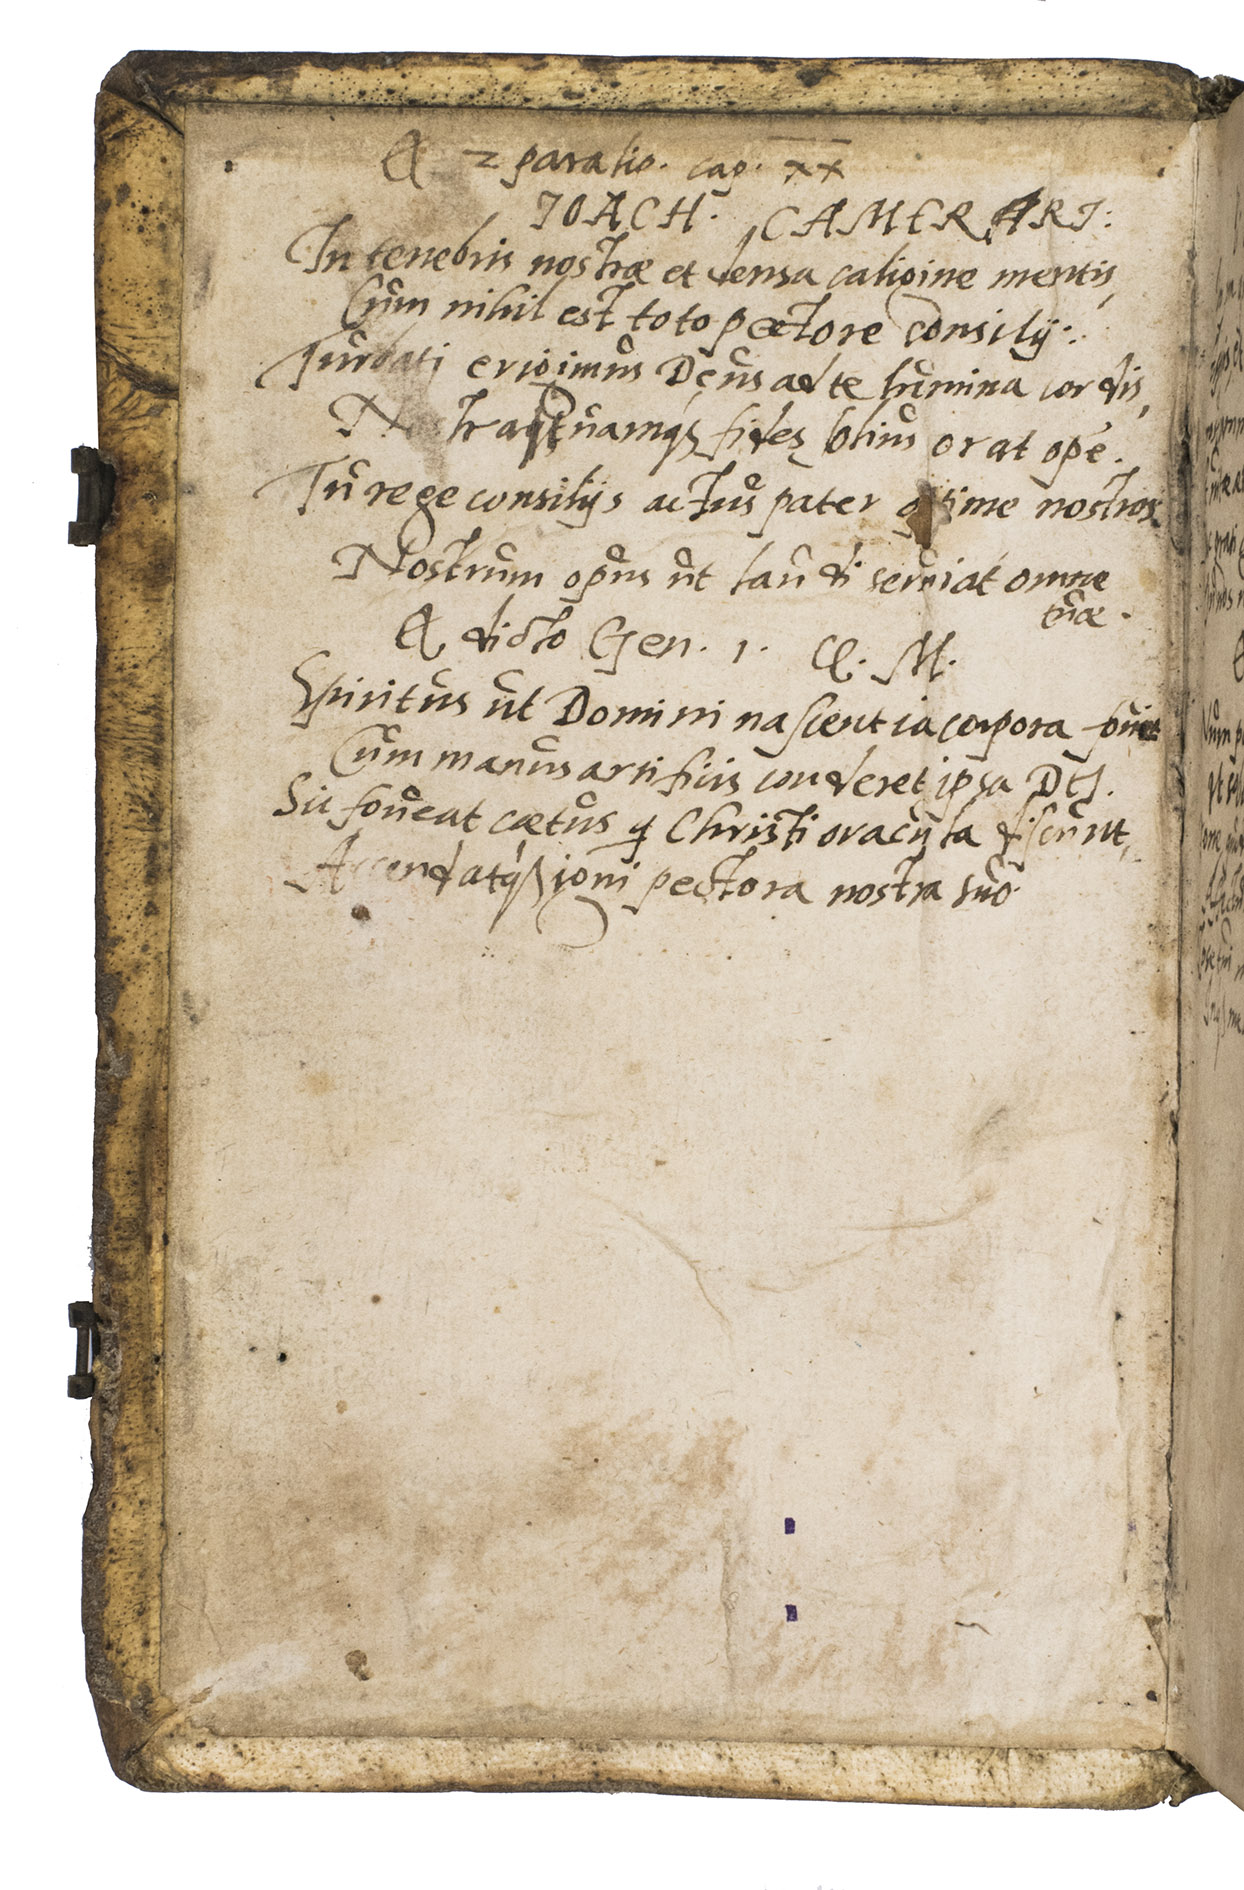 Ex 2 paralip. cap. XX
IOACH. CAMERARI:
In tenebris nostræ et densa caligine mentis,
Cum nihil est toto pectore consilij:
Turbati erigimus Deus ad te lumina cordis,
Nostra tuamqꝫ fides solius orat opē.
Tu rege consilijs actus pater optime nostros
Nostrum opus ut laudi seruiat omne
tuæ.
Ex dicto Gen. 1. P. M.
Spiritus ut Domini nascentia corpora fouit
Cum manus artificis conderet ipsa DEI.
Sic foueat cœtus q Christi oracula discunt,
Accendatqꝫ igni pectora nostra suo.